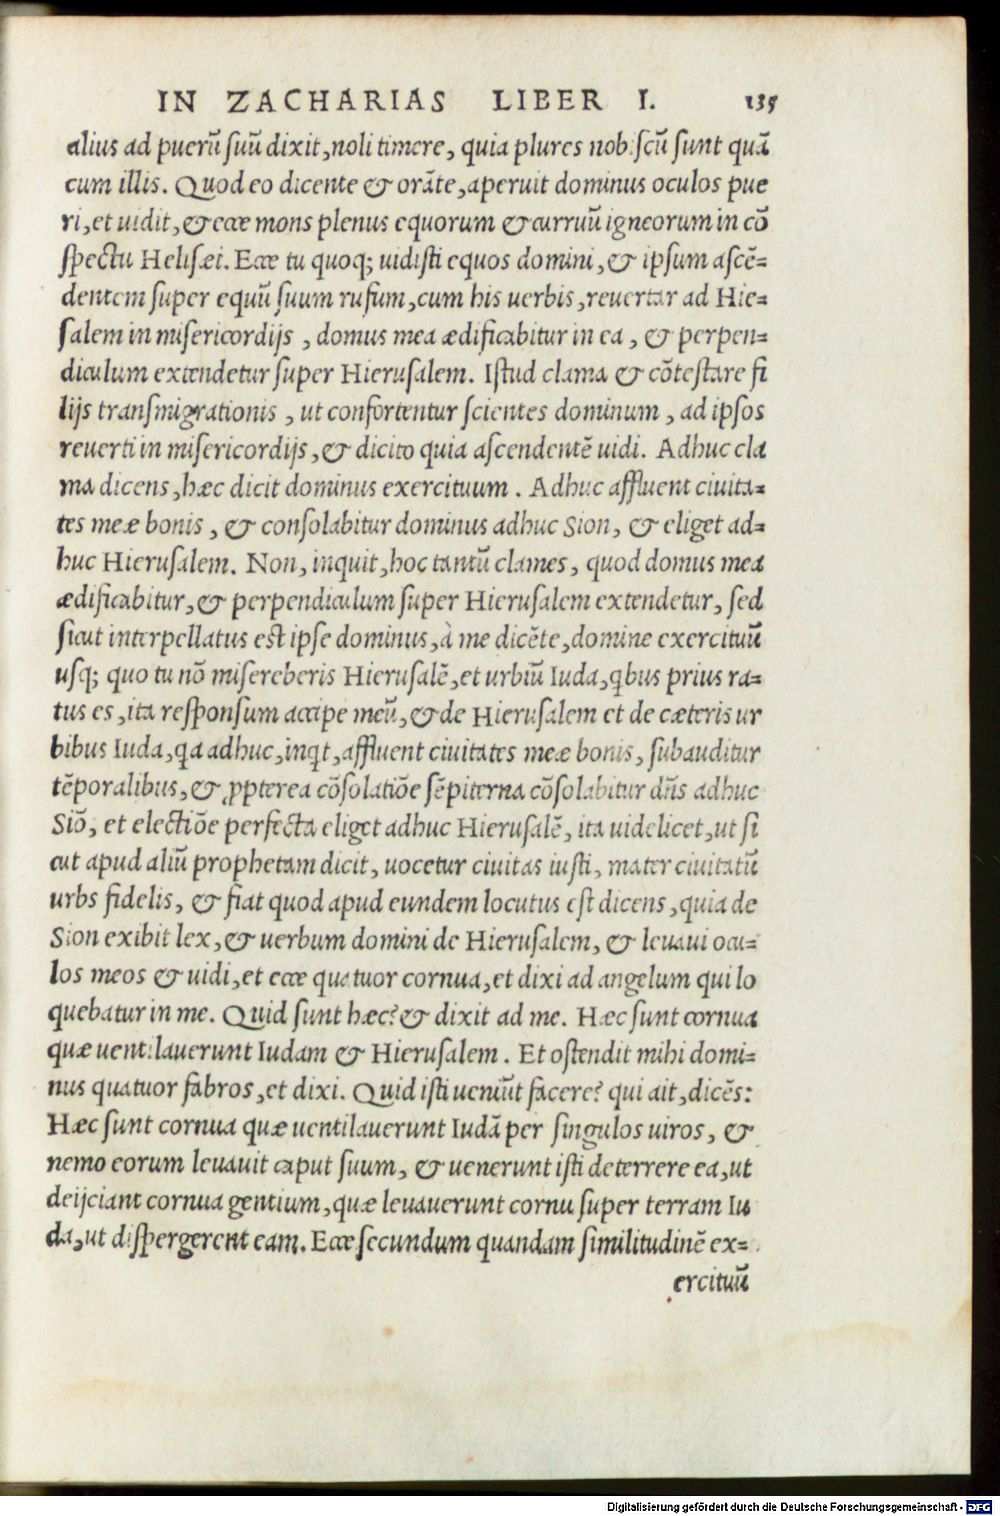 IN ZACHARIAS LIBER I. 135
alius ad puerũ suũ dixit, noli timere, quia plures nobiscũ sunt quã
cum illis. Quod eo dicente & orãte, aperuit dominus oculos pue
ri, et uidit, & ecce mons plenus equorum & curruũ igneorum in cõ
spectu Helisæi. Ecce tu quoq; uidisti equos domini, & ipsum ascẽ-
dentem super equũ suum rufum, cum his uerbis, reuertar ad Hie-
salem in misericordijs, domus mea ædificabitur in ea, & perpen-
diculum extendetur super Hierusalem. Istud clama & cõtestare fi
lijs transmigrationis, ut confortentur scientes dominum, ad ipsos
reuerti in misericordijs, & dicito quia ascendentẽ uidi. Adhuc cla
ma dicens, hæc dicit dominus exercituum. Adhuc affluent ciuita-
tes meæ bonis, & consolabitur dominus adhuc Sion, & eliget ad-
huc Hierusalem. Non, inquit, hoc tantũ clames, quod domus mea
ædificabitur, & perpendiculum super Hierusalem extendetur, sed
sicut interpellatus est ipse dominus, à me dicẽte, domine exercituũ
usq; quo tu nõ misereberis Hierusalẽ, et urbiũ Iuda, qbus prius ra-
tus es, ita responsum accipe meũ, & de Hierusalem et de cæteris ur
bibus Iuda, qa adhuc, inqt, affluent ciuitates meæ bonis, subauditur
tẽporalibus, & ꝓpterea cõsolatiõe sẽpiterna cõsolabitur dñs adhuc
Siõ, et electiõe perfecta eliget adhuc Hierusalẽ, ita uidelicet, ut si
cut apud aliũ prophetam dicit, uocetur ciuitas iusti, mater ciuitatũ
urbs fidelis, & fiat quod apud eundem locutus est dicens, quia de
Sion exibit lex, & uerbum domini de Hierusalem, & leuaui ocu-
los meos & uidi, et ecce quatuor cornua, et dixi ad angelum qui lo
quebatur in me. Quid sunt hæc? & dixit ad me. Hæc sunt cornua
quæ uentilauerunt Iudam & Hierusalem. Et ostendit mihi domi-
nus quatuor fabros, et dixi. Quid isti ueniũt facere? qui ait, dicẽs:
Hæc sunt cornua quæ uentilauerunt Iudã per singulos uiros, &
nemo eorum leuauit caput suum, & uenerunt isti deterrere ea, ut
deijciant cornua gentium, quæ leuauerunt cornu super terram Iu
da, ut dispergerent eam. Ecce secundum quandam similitudinẽ ex-
ercituũ
Digitalisierung gefördert durch die Deutsche Forschungsgemeinschaft - DFG